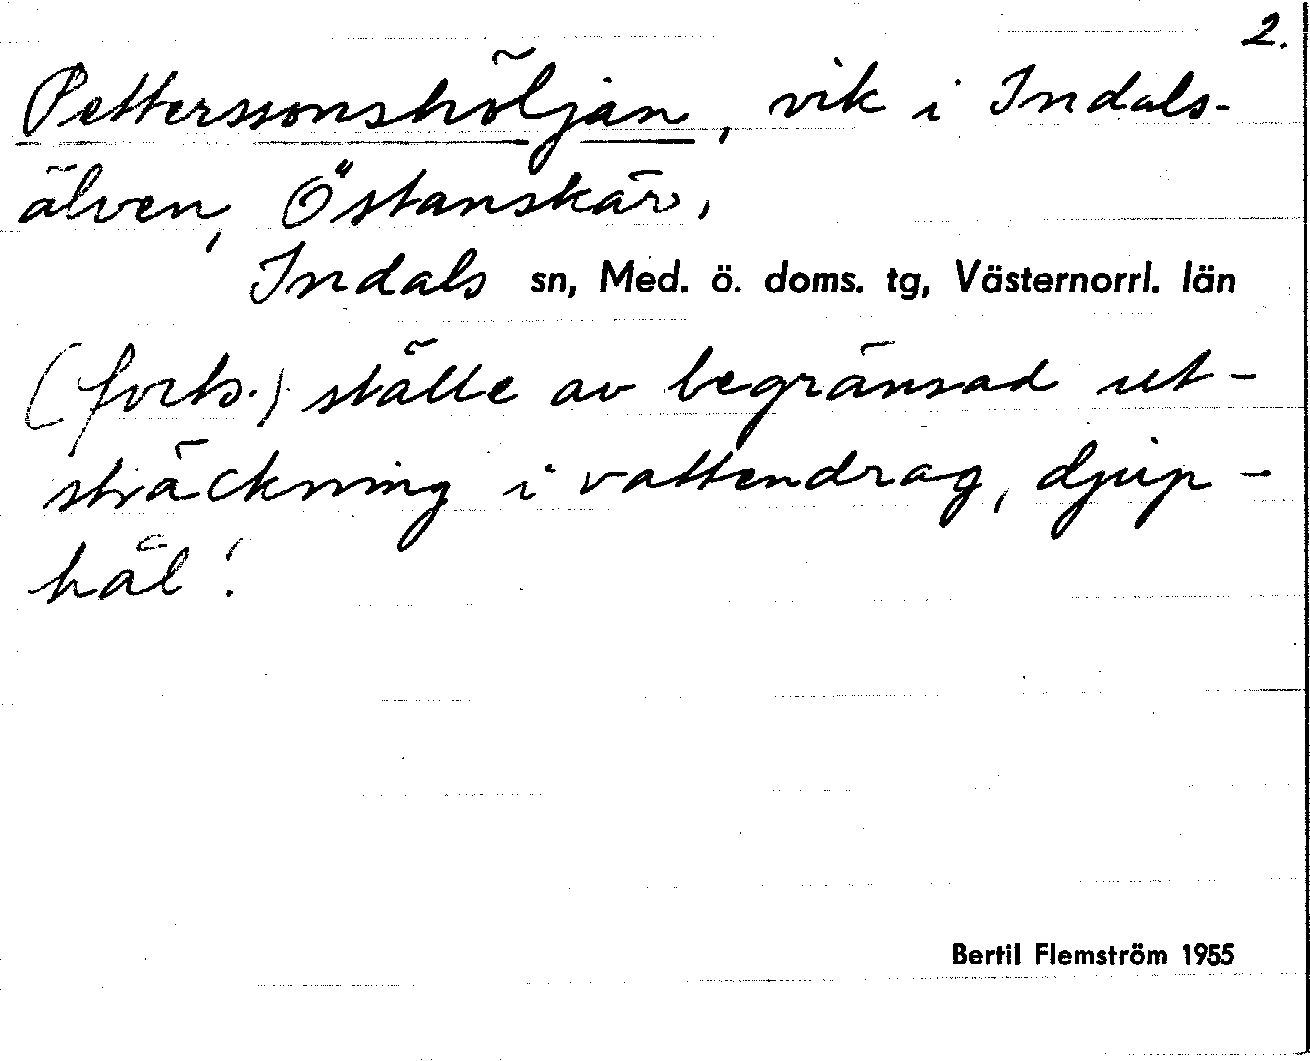 2.
Petterssonshöljan, vik i Indals-
älven, Östanskär,
Indals sn, Med. ö. doms. tg, Västernorrl. län
(forts.) ställe av begränsad ut-
sträckning i vattendrag, djup-
hål'.
Bertil Flemström 1955